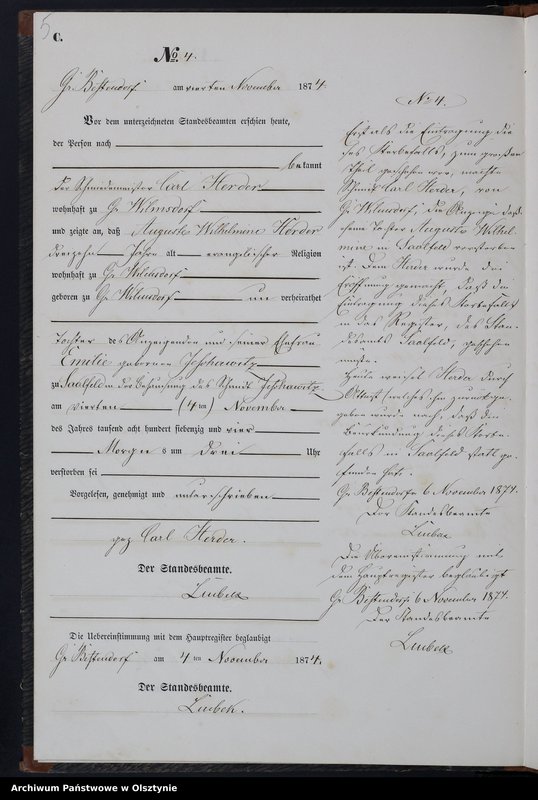 5
C.
No 4.
Gr. Bestendorf am vierten November 1874.
Vor dem unterzeichneten Standesbeamten erschien heute,
der Person nach
bekannt
der Schmiedemeister Carl Herder
wohnhaft zu Gr. Wilmsdorf
und zeigte an, daß Auguste Wilhelmine Herder
dreizehn Jahre alt evangelischer Religion
wohnhaft zu Gr. Wilmsdorf
geboren zu Gr. Wilmsdorf un verheirathet
Tochter des Anzeigenden und seiner Ehefrau
Emilie geborenen
zu Saalfeld in der Behausung des Schmidt
am vierten (4ten) November
des Jahres tausend acht hundert siebenzig und vier
Morgens um drei Uhr
verstorben sei
Vorgelesen, genehmigt und unterschrieben
gez Carl Herder.
Der Standesbeamte.
Die Uebereinstimmung mit dem Hauptregister beglaubigt
Gr. Bestendorf am 4ten November 1874.
Der Standesbeamte.
No 4.
Erst als die Eintragung die
ses Sterbefalls, zum großen
Theil geschehen war, machte
Schmidt Carl Herder, von
Gr. Wilmsdorf, die Anzeige daß
seine Tochter Auguste Wilhel-
mine in Saalfeld verstorben
ist. Dem Herder wurde die
Eröffnung gemacht, daß die
Eintragung dieses Sterbefalls
in das Register, des Stan-
desamts Saalfeld, geschehen
müsse.
Heute weist Herder durch
Attest (welches ihm zurückge-
geben wurde) nach, daß die
Beurkundung dieses Sterbe-
falls in Saalfeld statt ge-
funden habe.
Gr. Bestendorf 6 November 1874.
Der Standesbeamte
Die Übereinstimmung mit
dem Hauptregister beglaubigt
Gr. Bestendorf 6 November 1874.
Der Standesbeamte
Archiwum Państwowe w Olsztynie